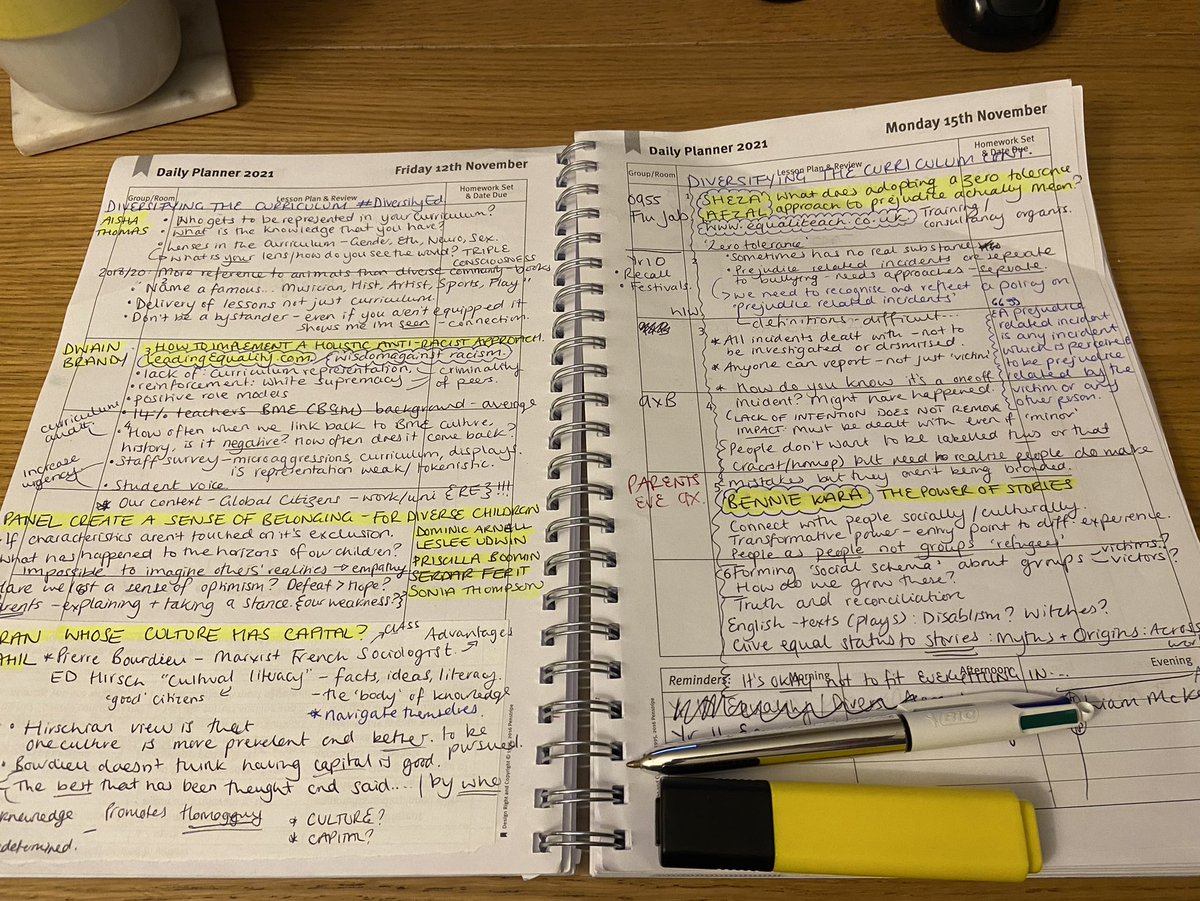 Daily Planner 2021
Friday 12th November
Group/Room
Lesson Plan & Review
Homework Set
& Date Due
DIVERSIFYING THE CURRICULUM #DiversityEd
AISHA
THOMAS
• Who gets to be represented in your curriculum?
• What is the knowledge that you have?
• Lenses in the curriculum - Gender, Eth, Neuro, Sex.
↳ What is your lens/how do you see the world? TRIPLE
CONSCIOUSNESS
2018/20: More reference to animals than diverse community - books
• Name a famous... Musician, Hist, Artist, Sports, Play"
• Delivery of lessons not just curriculum.
• Don't be a bystander - even if you aren't equipped it
shows me im seen - connection.
DWAIN
BRANDY
HOW TO IMPLEMENT A HOLISTIC ANTI-RACIST APPROACH.
leadingequality.com {wisdomagainst racism}
• lack of curriculum representation, - criminality
• reinforcement: white supremacy of peers.
• positive role models
curriculum
audit.
• 14% teachers BME background - average
• How often when we link back to BME culture,
history, is it negative? How often does it come back?
increase
urgency
• Staff survey - microaggressions, curriculum, displays.
is representation weak/tokenistic.
• Student voice.
* Our context - Global Citizens - work/uni {RE}!!!
PANEL CREATE A SENSE OF BELONGING - FOR DIVERSE CHILDREN
If characteristics aren't touched on it's exclusion.
What has happened to the horizons of our children?
Impossible to imagine others' realities → empathy
have we lost a sense of optimism? Defeat > Hope?
parents - explaining + taking a stance. {our weakness?}
DOMINIC ARNELL
LESLEE UDWIN
PRISCILLA
SERDAR FERIT
SONIA THOMPSON
WHOSE CULTURE HAS CAPITAL?
CLASS
Advantages
* Pierre Bourdieu - Marxist French Sociologist.
ED Hirsch "Cultural literacy" - facts, ideas, literacy.
'good' citizens
- the 'body' of knowledge
* navigate themselves.
• Hirschian view is that
one culture is more prevalent and better. to be
pursued.
• Bourdieu doesn't think having capital is good.
The best that has been thought and said.... / by who
knowledge - Promotes
determined.
* CULTURE?
* CAPITAL?
Design: Right and Copyright © 1996, 2016 Penstripe
Daily Planner 2021
Monday 15th November
Group/Room
Lesson Plan & Review
Homework Set
& Date Due
DIVERSIFYING THE CURRICULUM CONT.
0955
Flu Jab
1
SHEZA
AFZAL
What does adopting a zero tolerance
approach to prejudice actually mean?
www.equaliteach.co.uk Training/
consultancy organis.
'Zero tolerance'
• Sometimes has no real substance
Yr10
2
• Recall
Festivals.
• Prejudice related incidents are seperate
to bullying - needs approaches - seperate.
↳ we need to recognise and reflect a policy on
'prejudice related incidents'
↳ definitions - difficult...
H/W
3
* All incidents dealt with - not to
be investigated or dismissed.
* Anyone can report - not just 'victim'
"A prejudice
related incident
is any incident
which is perceived
to be prejudice
related by the
victim or any
other person.
9xB
4
* How do you know it's a one off
incident? Might have happened.
LACK OF INTENTION DOES NOT REMOVE
IMPACT. Must be dealt with even if 'minor'
People don't want to be labelled this or that
(racist/homop) but need to realise people do make
mistakes but they arent being branded.
PARENTS
EVE 9X.
BENNIE KARA THE POWER OF STORIES
Connect with people socially/culturally.
Transformative power - entry point to diff experience.
People as people not groups 'refugees'
6
Forming 'social schema' about groups
victims?
victors?
How do we grow these?
Truth and reconciliation
English - texts (plays): Disablism? Witches?
Give equal status to stories: Myths + Origins: Across
Reminders:
Morning
Afternoon
Evening
It's okay not to fit EVERYTHING IN...
Yr 11
BIC